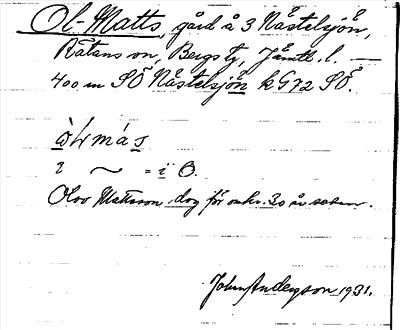 Ol-Matts, gård å 3 Nästelsjön,
Rätans sn, Bergs tg, Jämtl. l. —
400 m SÖ Nästelsjön k G72 SÖ.
Olov Mattsson, dog för omkr. 30 år sedan.
John Andersson 1931.